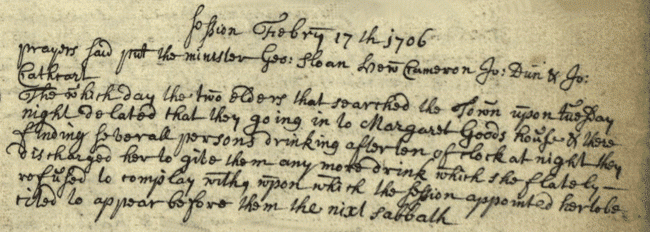 Session Febry 17th 1706
prayers said put the minister Geo: Sloan Hew Cameron Jo: Dun & Jo:
Cathcart
The which day the two elders that searched the Town upon tuesday
night delated that they going in to Margaret Goods house & there
finding severall persons drinking after ten of clock at night they
discharged her to give them any more drink which she flately
refused to complay with, upon which the session appointed her to be
cited to appear before them the nixt sabbath